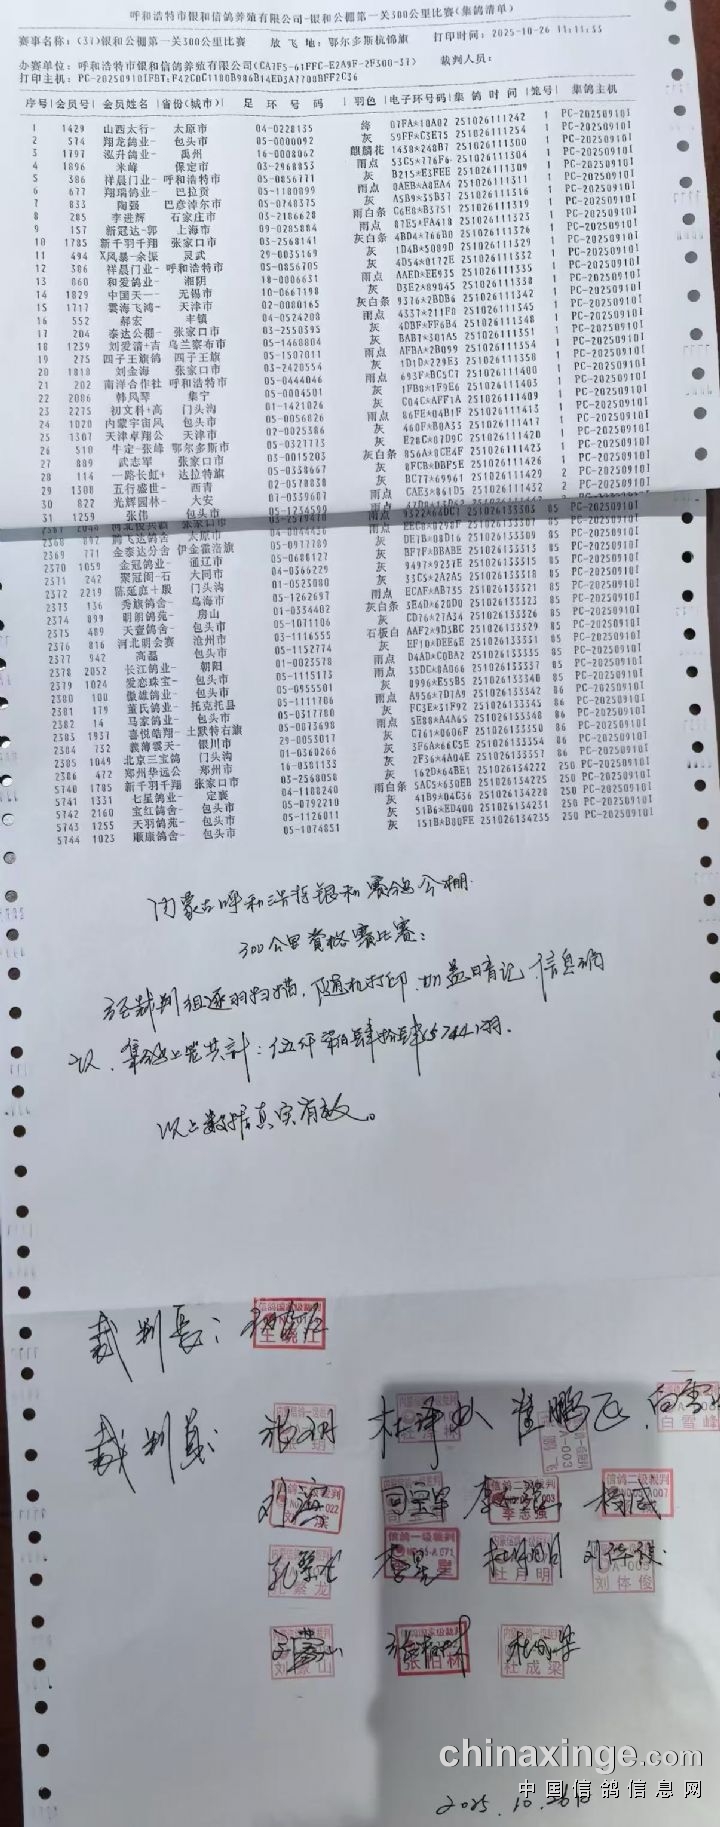 呼和浩特市银和信鸽养殖有限公司-银和公棚第一关300公里比赛(集鸽清单)
赛事名称: (37)银和公棚第一关300公里比赛 放 飞 地: 鄂尔多斯杭锦旗 打印时间: 2025-10-26 11:11:33
办赛单位: 呼和浩特市银和信鸽养殖有限公司(CA7F5-61FFC-E2A9F-2F300-37) 裁判人员:
打印主机: PC-20250910IFBT:F42C0C1180B986B14ED3A7700BFF2C36
序号|会员号| 会员姓名 |省份(城市)| 足 环 号 码 |羽色|电子环号码|集 鸽 时 间 |笼号| 集鸽主机
1 1429 山西太行- 太原市 04-0228135 绛 07FA*10A02 251026111242 1 PC-20250910I
2 574 翔龙鸽业- 包头市 05-0000092 灰 59FF*C3E75 251026111254 1 PC-20250910I
3 1797 泓升鸽业- 禹州 16-0008062 麒麟花 1438*248B7 251026111300 1 PC-20250910I
4 1896 米峰 保定市 03-2968853 雨点 53C5*776F6 251026111304 1 PC-20250910I
5 386 祥晨门业- 呼和浩特市 05-0856771 灰 B215*E3FEE 251026111309 1 PC-20250910I
6 677 翔瑞鸽业- 巴拉贡 05-1180899 雨点 0AEB*A8EA4 251026111311 1 PC-20250910I
7 833 陶强 巴彦淖尔市 05-0748375 灰 A5B9*35B37 251026111316 1 PC-20250910I
8 285 李进辉 石家庄市 03-2186628 雨白条 C6E8*B3751 251026111319 1 PC-20250910I
9 157 新冠达-郭 上海市 09-0285884 雨点 87E5*FA418 251026111323 1 PC-20250910I
10 1785 新千羽千翔 张家口市 03-2568141 灰白条 4BD4*766B0 251026111326 1 PC-20250910I
11 494 X风暴-余振 灵武 29-0035169 灰 1D4B*5089D 251026111329 1 PC-20250910I
12 386 祥晨门业- 呼和浩特市 05-0856705 灰 4D54*0172E 251026111332 1 PC-20250910I
13 860 和爱鸽业- 湘阴 18-0006631 雨点 AAED*EE935 251026111335 1 PC-20250910I
14 1829 中国天一- 无锡市 10-0667198 灰 D3E2*89845 251026111338 1 PC-20250910I
15 1717 云海飞鸿- 天津市 02-0080165 灰白条 9376*2BDB6 251026111342 1 PC-20250910I
16 552 郝宏 丰镇 04-0524208 雨点 4337*211F8 251026111345 1 PC-20250910I
17 204 泰达公棚- 张家口市 03-2550395 灰 4DBF*FF6B4 251026111348 1 PC-20250910I
18 1239 刘爱清+吉 乌兰察布市 05-1460804 灰 BAB7*301A5 251026111351 1 PC-20250910I
19 275 四子王旗鸽 四子王旗 05-1507011 雨点 AFBA*2B099 251026111354 1 PC-20250910I
20 1818 刘金海 张家口市 03-2420554 灰 1D1D*229E3 251026111358 1 PC-20250910I
21 202 南洋合作社 呼和浩特市 05-0444046 雨点 693F*BC5C7 251026111400 1 PC-20250910I
22 2086 韩风琴 集宁 05-0004501 灰 1FB8*1F9E6 251026111403 1 PC-20250910I
23 2275 初文科+高 门头沟 01-1421026 灰 C04C*AFF1A 251026111409 1 PC-20250910I
24 1020 内蒙宇宙风 包头市 05-0056826 雨点 86FE*04B1F 251026111413 1 PC-20250910I
25 1307 天津卓翔公 天津市 02-0025386 灰 460F*B0A35 251026111417 1 PC-20250910I
26 510 牛定-张峰 鄂尔多斯市 05-0327773 灰 E28C*07D9C 251026111420 1 PC-20250910I
27 889 武志军 张家口市 03-0015203 灰白条 856A*8CE4F 251026111423 1 PC-20250910I
28 114 一路长虹+ 达拉特旗 05-0338667 灰 8FCB*DBF5E 251026111426 1 PC-20250910I
29 1308 五行盛世- 西青 02-0578838 灰 BC77*69961 251026111429 2 PC-20250910I
30 822 光辉园林- 大安 07-0339607 雨点 CAE3*861D5 251026111432 2 PC-20250910I
31 1259 张伟 包头市 05-1234599
2368 892 腾飞达鸽舍 太原市 04-0844436 雨点 EEC8*0298F 251026133307 85 PC-20250910I
2369 771 金泰达分舍 伊金霍洛旗 05-0977789 灰 DE1B*08D16 251026133309 85 PC-20250910I
2370 1059 金冠鸽业- 通辽市 05-0688127 灰 BF7F*DBABE 251026133313 85 PC-20250910I
2371 242 聚冠阁-石 大同市 04-0366229 灰 9497*9237E 251026133315 85 PC-20250910I
2372 2219 陈延庭+殷 门头沟 01-0523080 灰 33C5*2A2A5 251026133318 85 PC-20250910I
2373 136 秀旗鸽舍- 乌海市 05-1262697 雨点 ECAF*AB735 251026133321 85 PC-20250910I
2374 899 明朗鸽苑- 房山 01-0334402 灰白条 3E4D*620D0 251026133323 85 PC-20250910I
2375 489 天壹鸽舍- 包头市 05-1071106 灰 CD76*27A34 251026133326 85 PC-20250910I
2376 816 河北明会赛 沧州市 03-1116555 石板白 AAF2*9D3BC 251026133329 85 PC-20250910I
2377 942 高磊 包头市 05-1152774 灰 EF10*DEE6E 251026133331 85 PC-20250910I
2378 2052 长江鸽业- 朝阳 01-0023578 雨点 D4AD*C0BA2 251026133335 85 PC-20250910I
2379 1024 爱恋珠宝- 包头市 05-1115173 雨点 33DC*8A066 251026133337 85 PC-20250910I
2380 100 傲雄鸽业- 包头市 05-0955501 灰 8996*E55B5 251026133340 86 PC-20250910I
2381 179 董氏鸽业- 托克托县 05-1111786 雨点 A956*7D7A9 251026133342 86 PC-20250910I
2382 14 马家鸽业- 包头市 05-0317780 灰 FC3E*31F92 251026133345 86 PC-20250910I
2383 1937 喜悦皓翔- 土默特右旗 05-0073698 雨点 5E88*A4A65 251026133348 86 PC-20250910I
2384 732 义薄云天- 银川市 29-0053017 灰 C761*0606F 251026133350 86 PC-20250910I
2385 1049 北京三宝鸽 门头沟 01-0360266 灰 3F6A*66C5E 251026133354 86 PC-20250910I
2386 472 郑州华远公 郑州市 16-0381133 灰 2F36*4A04E 251026133357 86 PC-20250910I
5740 1785 新千羽千翔 张家口市 03-2568058 灰 162D*64BE1 251026134222 250 PC-20250910I
5741 1331 七星鸽业- 定襄 04-1188240 雨白条 5AC5*630EB 251026134225 250 PC-20250910I
5742 2160 宝红鸽舍- 包头市 05-0792210 灰 41B9*04C36 251026134228 250 PC-20250910I
5743 1255 天羽鸽苑- 包头市 05-1126011 灰 51B6*ED400 251026134231 250 PC-20250910I
5744 1023 顺康鸽舍- 包头市 05-1074851 灰 151B*B80FE 251026134235 250 PC-20250910I
内蒙古呼和浩特银和赛鸽公棚
300公里资格赛比赛:
经裁判组逐羽扫描,随机打印,加盖暗记信息确
认,集鸽上笼共计:伍仟柒佰肆拾肆(5744)羽.
以上数据真实有效。
裁判长:
裁判员: 张玥 杜泽林 崔鹏飞 白雪峰
刘滨 司宝军 李志强 杨威
孔繁龙 李星 杜月明 刘体俊
刘蒙山 张柏林 杜成梁
chinaxinge.com
中国信鸽信息网
2025.10.26日